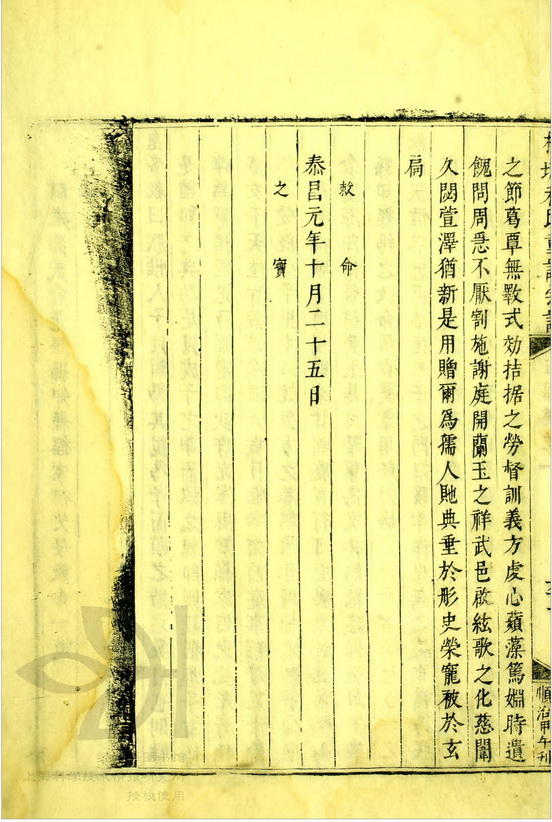 之節葛覃無斁式効拮据之勞督訓義方虔心蘋藻篤婣時遺
餽問周急不厭割施謝庭開蘭玉之祥武邑啟絃歌之化慈闈
久閟萱澤猶新是用贈爾為孺人貤典垂於彤史榮寵被於玄
扃
泰昌元年十月二十五日
敕命
之寶
順治甲午刊
授权使用